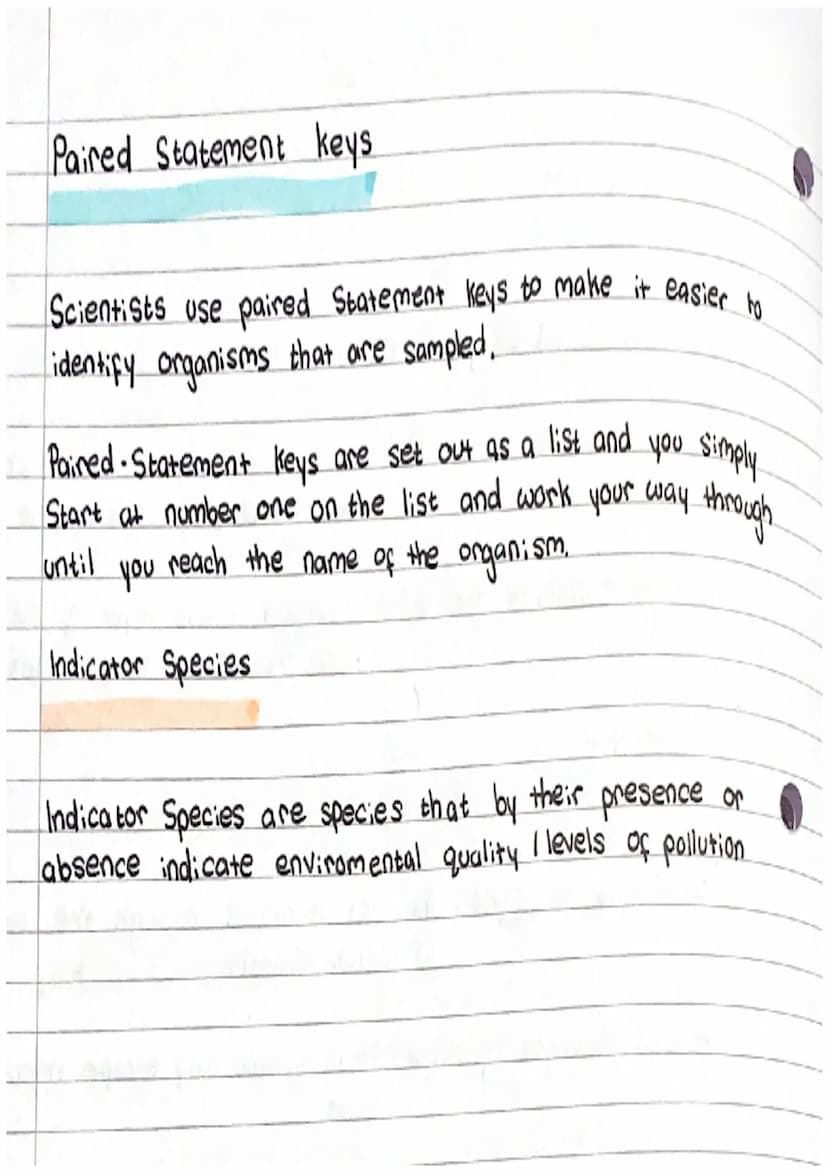 Paired Statement keys
Scientists use paired Statement keys to make it easier to
identify organisms that are sampled.
Paired-Statement keys are set out as a list and you simply
Start at number one on the list and work your way through
until you reach the name of the organism.
Indicator Species
Indicator Species are species that by their presence or
absence indicate enviromental quality / levels of pollution